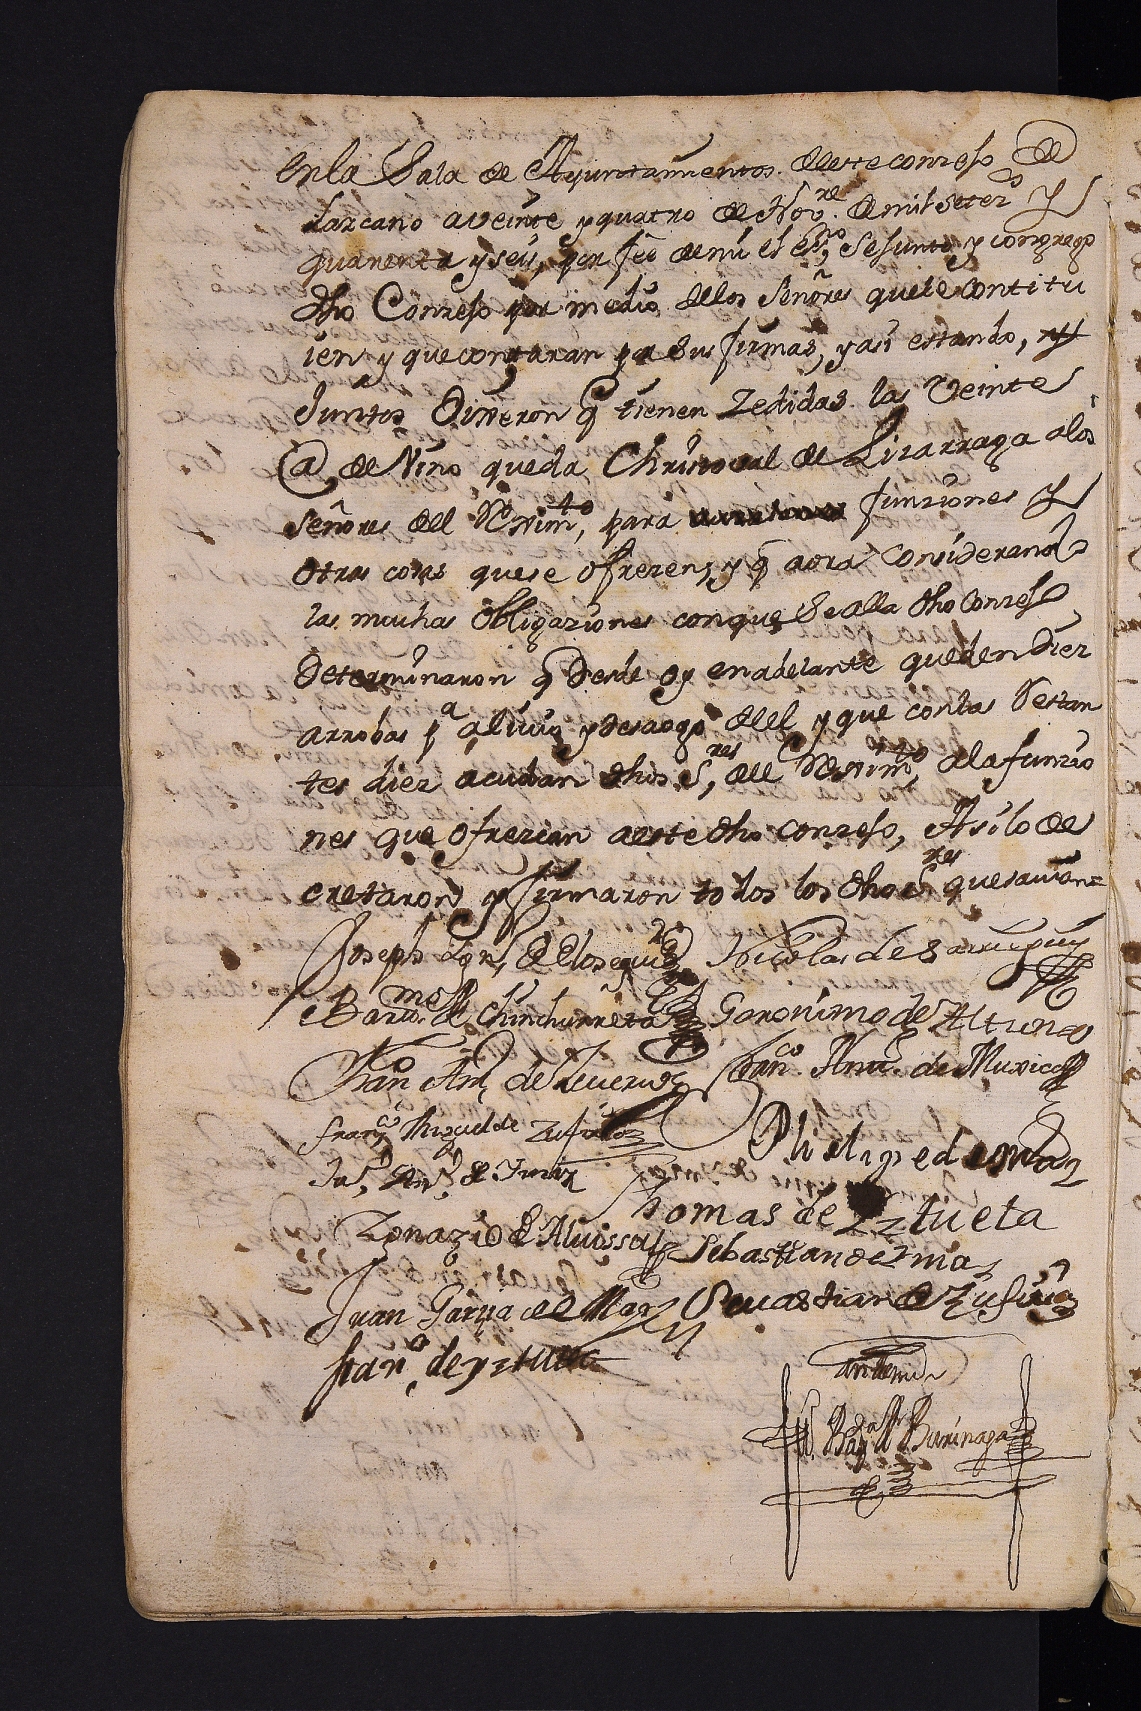 En la Sala de Ayuntamientos deeste conzejo de
Lazcano a veinte y quatro de Nov.re de mil setez.s y
quarenta y seis, por feé de mi el ess.no, se junto y congrego
dho Conzejo por medio de los señores que le contitu
ien y que contaran por sus firmas, y asi estando,
Juntos Dijieron q̃ tienen zedidas las veinte
@ de Vino que da Christoval de Lizarraga a los
Señores del Rexim.to, para funziones y
otras cosas que se ofrezen, y q̃ aora Considerand.o
las muchas obligaziones con que se alla dho Conzejo
Determinaron q̃ Desde oy en adelante queden Diez
arrobas p.a alivio y desaogo del y que con las Restan
tes diez acudan dhos S.res del Rexim.to a la funzio
nes que ofrezcan a este dho conzejo, Asi lo de
cretaron y firmaron todos los dhos S.res que savian=
Joseph Ign.o de Nicolas de
Bar.me de Chinchurreta Geronimo de Altuna
Fran.co Ant.o de Fran.co Ant.o de Muxica
Fran.co Miguel de
Ju.n Ant.o de
Thomas de Yztueta
Ygnazio de Aluissu Sebastian de
Juan Garzia de Seuastian de
Fran.co de yztueta
Ante mi